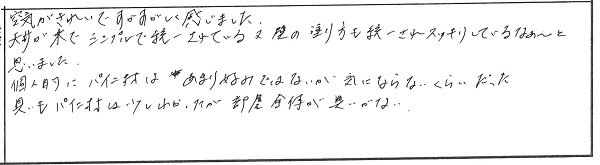 空気がきれいですがすがしく感じました。
天井が木でシンプルで統一されている又壁の塗り方も統一されスッキリしているなぁんと
思いました。
個人的にパイン材はあまり好みではないが気にならないくらいだった
臭いもパイン材は少しわかったが部屋全体が臭いがない。